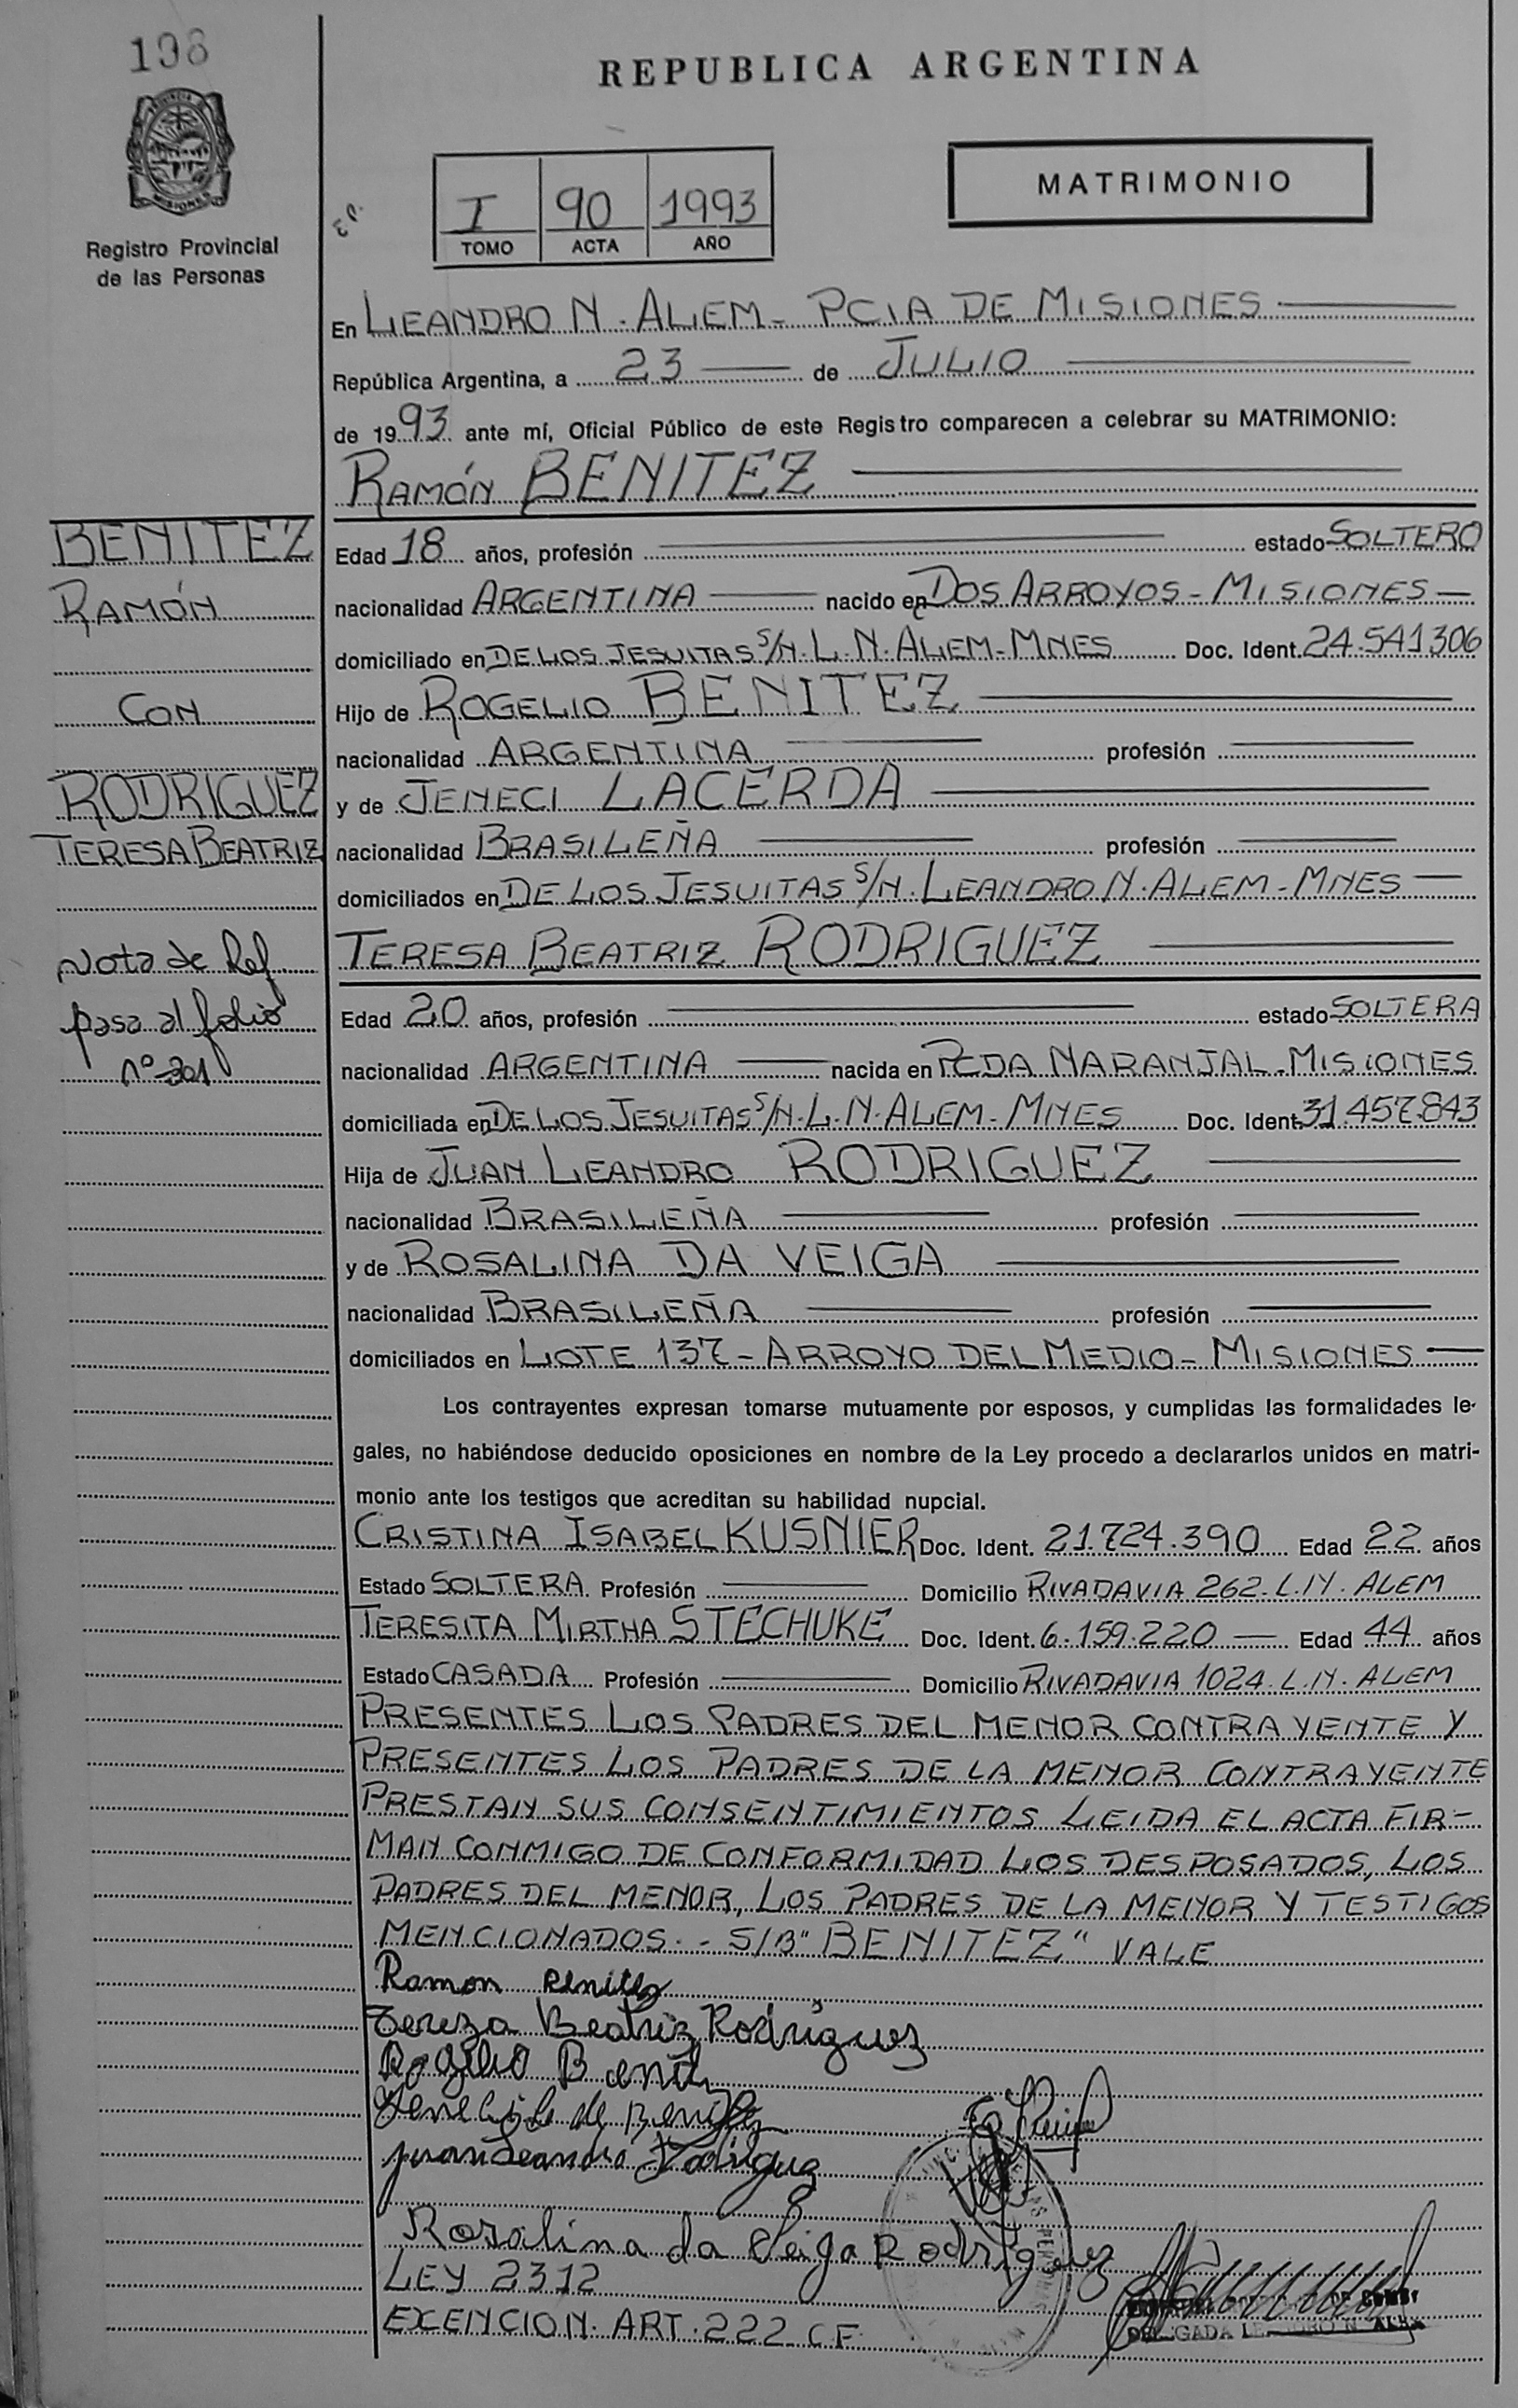 198
REPUBLICA ARGENTINA
MISIONES
Registro Provincial
de las Personas
I 90 1993
TOMO ACTA AÑO
MATRIMONIO
En LEANDRO N. ALEM - PCIA DE MISIONES
República Argentina, a 23 de JULIO
de 1993 ante mí, Oficial Público de este Registro comparecen a celebrar su MATRIMONIO:
RAMÓN BENITEZ
Edad 18 años, profesión estado SOLTERO
nacionalidad ARGENTINA nacido en DOS ARROYOS - MISIONES
domiciliado en DE LOS JESUITAS S/N. L. N. ALEM - MNES Doc. Ident. 24.541306
Hijo de ROGELIO BENITEZ
nacionalidad ARGENTINA profesión
y de JENECI LACERDA
nacionalidad BRASILEÑA profesión
domiciliados en DE LOS JESUITAS S/N. LEANDRO N. ALEM - MNES
TERESA BEATRIZ RODRIGUEZ
Edad 20 años, profesión estado SOLTERA
nacionalidad ARGENTINA nacida en PCDA NARANJAL - MISIONES
domiciliada en DE LOS JESUITAS S/N. L. N. ALEM - MNES Doc. Ident. 31.457.843
Hija de JUAN LEANDRO RODRIGUEZ
nacionalidad BRASILEÑA profesión
y de ROSALINA DA VEIGA
nacionalidad BRASILEÑA profesión
domiciliados en LOTE 137 - ARROYO DEL MEDIO - MISIONES
Los contrayentes expresan tomarse mutuamente por esposos, y cumplidas las formalidades le-
gales, no habiéndose deducido oposiciones en nombre de la Ley procedo a declararlos unidos en matri-
monio ante los testigos que acreditan su habilidad nupcial.
CRISTINA ISABEL KUSNIER Doc. Ident. 21.724.390 Edad 22 años
Estado SOLTERA Profesión Domicilio RIVADAVIA 262. L. N. ALEM
TERESITA MIRTHA STECHUKE Doc. Ident. 6.159.220 Edad 44 años
Estado CASADA Profesión Domicilio RIVADAVIA 1024. L. N. ALEM
PRESENTES LOS PADRES DEL MENOR CONTRAYENTE Y
PRESENTES LOS PADRES DE LA MENOR CONTRAYENTE
PRESTAN SUS CONSENTIMIENTOS LEIDA EL ACTA FIR-
MAN CONMIGO DE CONFORMIDAD LOS DESPOSADOS, LOS
PADRES DEL MENOR, LOS PADRES DE LA MENOR Y TESTIGOS
MENCIONADOS. - S/B "BENITEZ" VALE
Ramon Benitez
Tereza Beatriz Rodriguez
Rogelio Benit
de Benitez
Juan Leandro Rodriguez
Rosalina da Veiga Rodriguez
LEY 2312
EXENCION. ART. 222 C F
BENITEZ
RAMÓN
CON
RODRIGUEZ
TERESA BEATRIZ
Nota de Ref
pasa al folio
nº 201